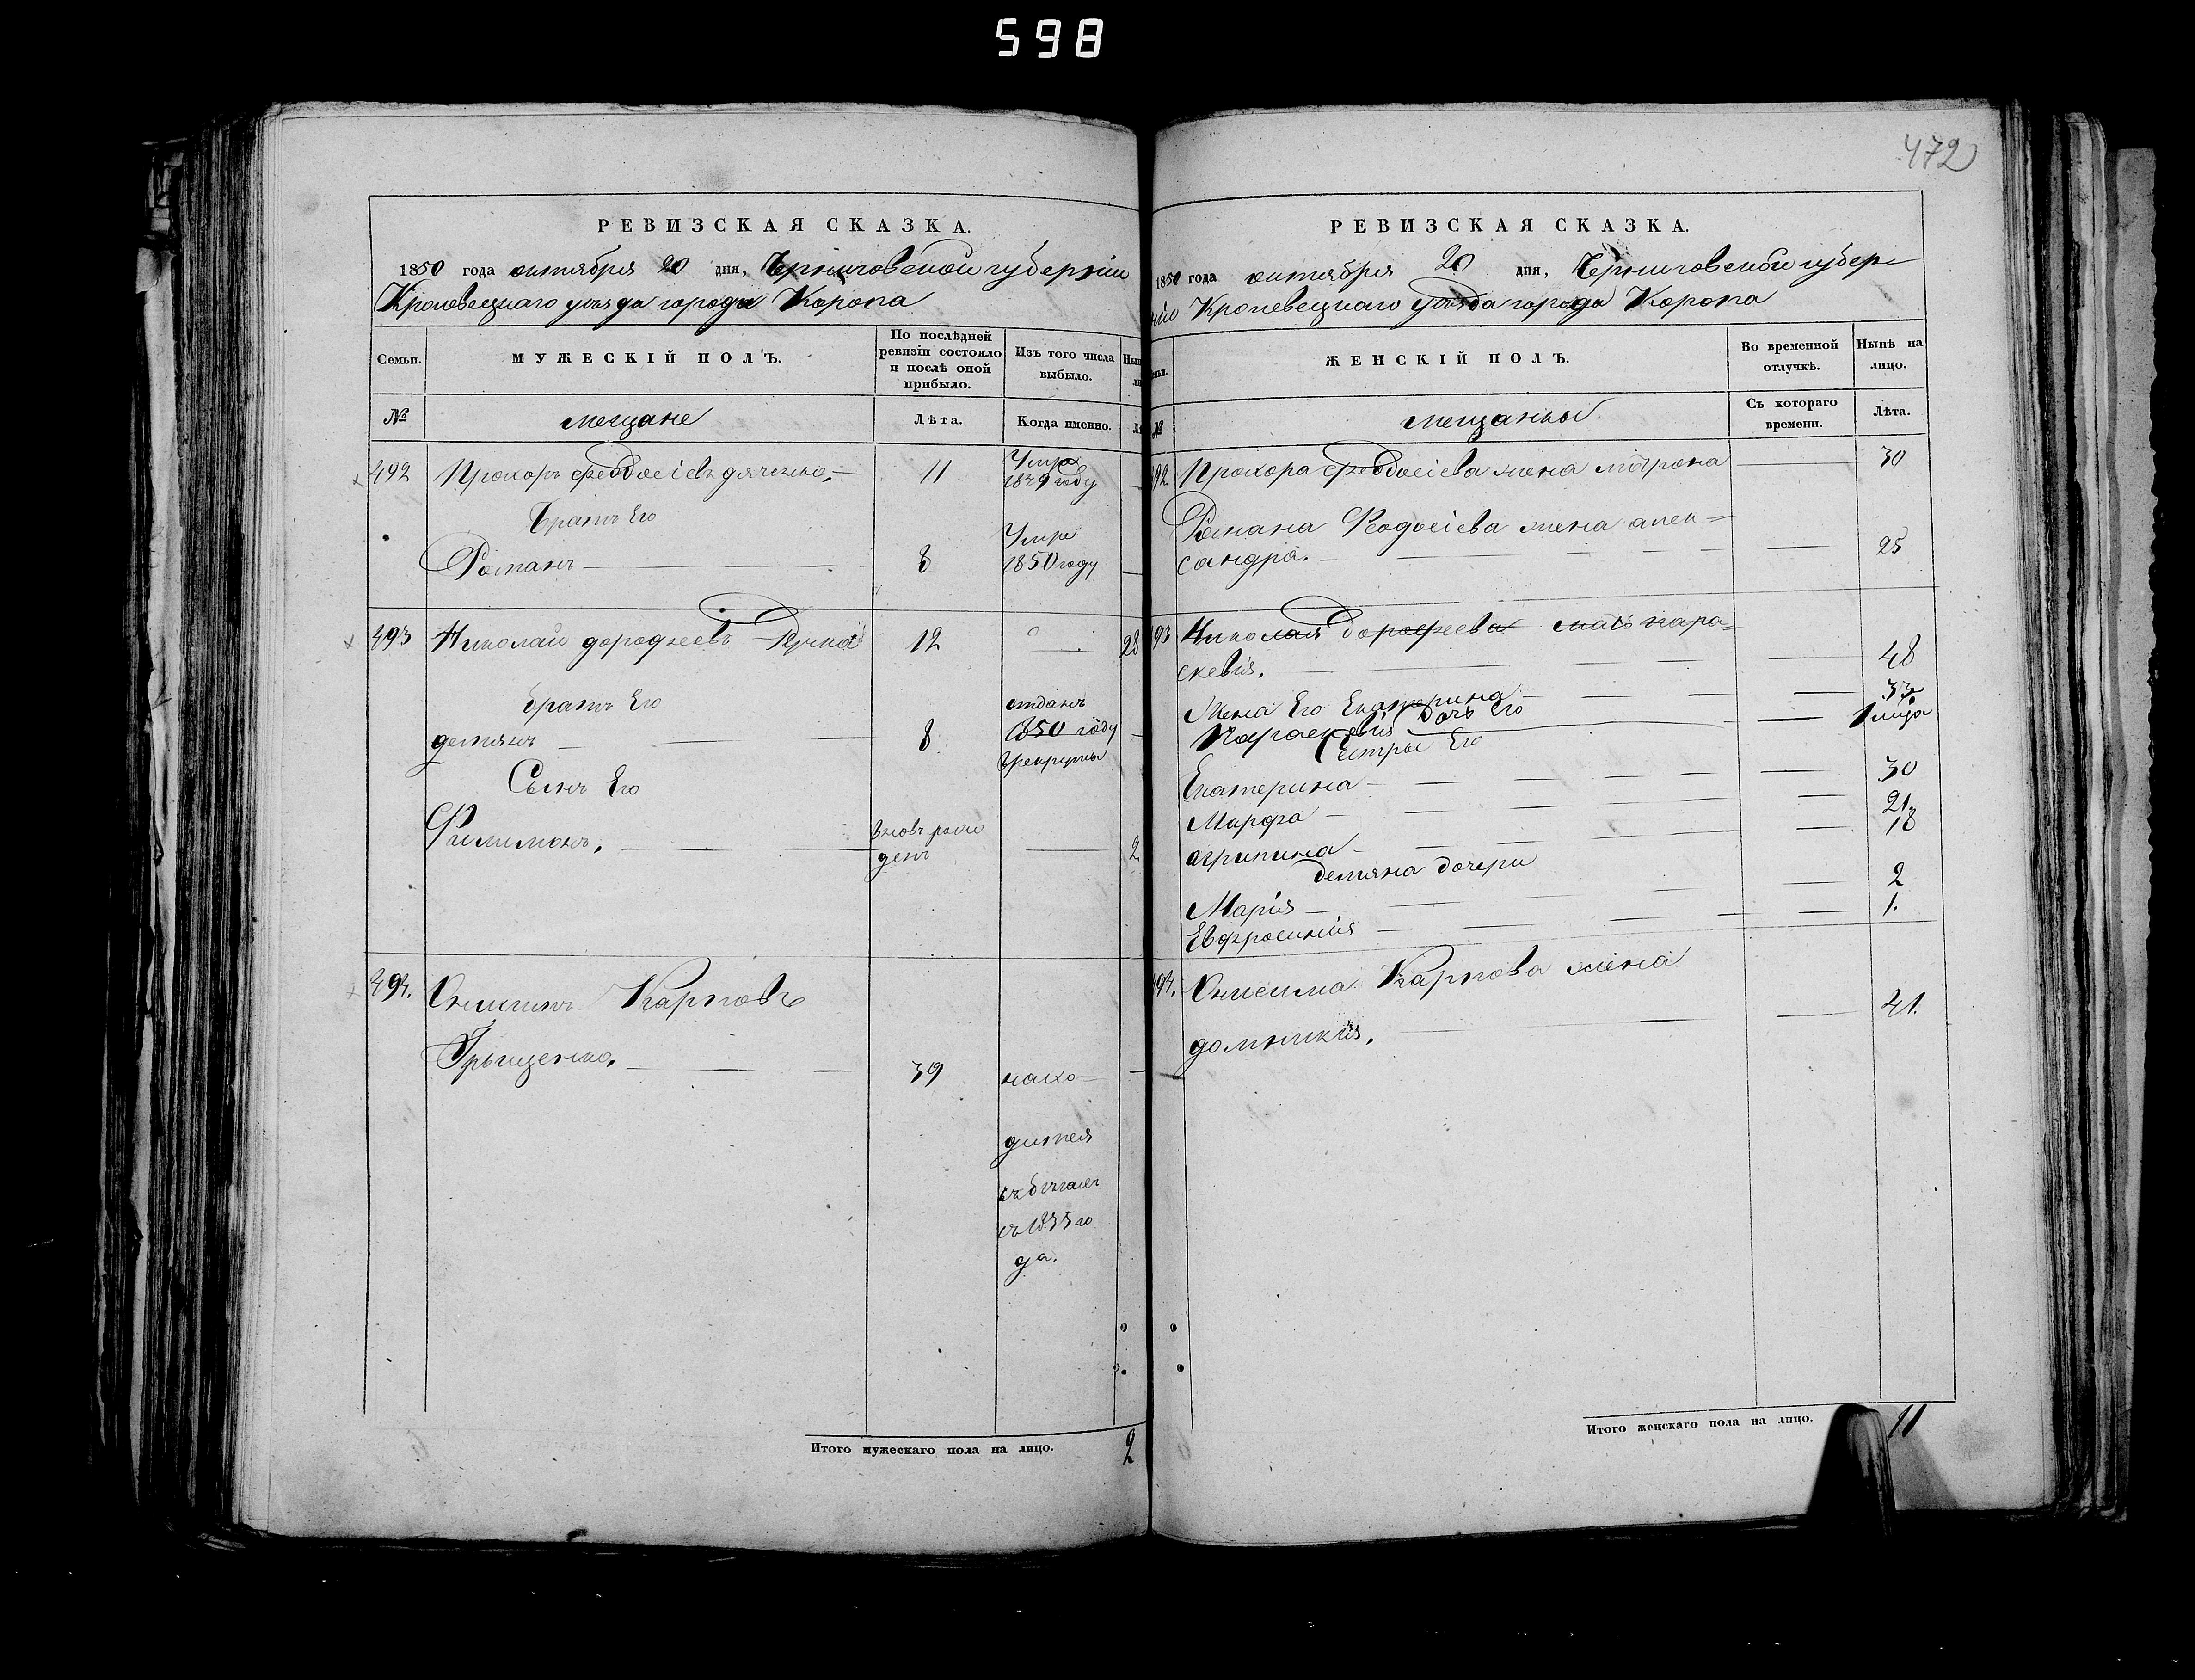 598
472
РЕВИЗСКАЯ СКАЗКА.
1850 года октября 20 дня, Черниговской губерніи
Кролевецкаго уѣзда города Коропа
Семьи.
МУЖЕСКІЙ ПОЛЪ.
По послѣдней
ревизіи состояло
и послѣ оной
прибыло.
Изъ того числа
выбыло.
№
мещане
Лѣта.
Когда именно.
492 Прохоръ Феодосіевъ дяченко, 11 Умре
1849 году
Братъ Его
Романъ 8 Умре
1850 году
493 Николай дорофеевъ 12 28
братъ Его
демянъ 8 отданъ
1850 году
врекруты
Сынъ Его
Филимонъ, вновь рож
денъ 2
494. Онисимъ Карповъ
Грыщенко, 39 нахо=
дится
въ бѣгахъ
съ 1835 го
да.
Итого мужескаго пола на лицо. 2
РЕВИЗСКАЯ СКАЗКА.
1850 года октября 20 дня, Черниговской губер
ніи Кролевецкаго уѣзда города Коропа
ЖЕНСКІЙ ПОЛЪ.
Во временной
отлучкѣ.
Нынѣ на
лицо.
№
мещанки
Съ котораго
времени.
Лѣта.
92 Прохора Феодосіева жена матрона 30
Романа Феодосіева жена алек=
сандра. 25
93 Николая дорофеева мать пара=
скевія. 48
Жена Его Екатерина 33
Параскевія дочь Его
Сестры Его
Екатерина 30
Марфа 21
агрипина 18
демяна дочери
Марія 2
Евфросинія 1.
94. Онисима Карпова жена
домникія, 41.
Итого женскаго пола на лицо. 11